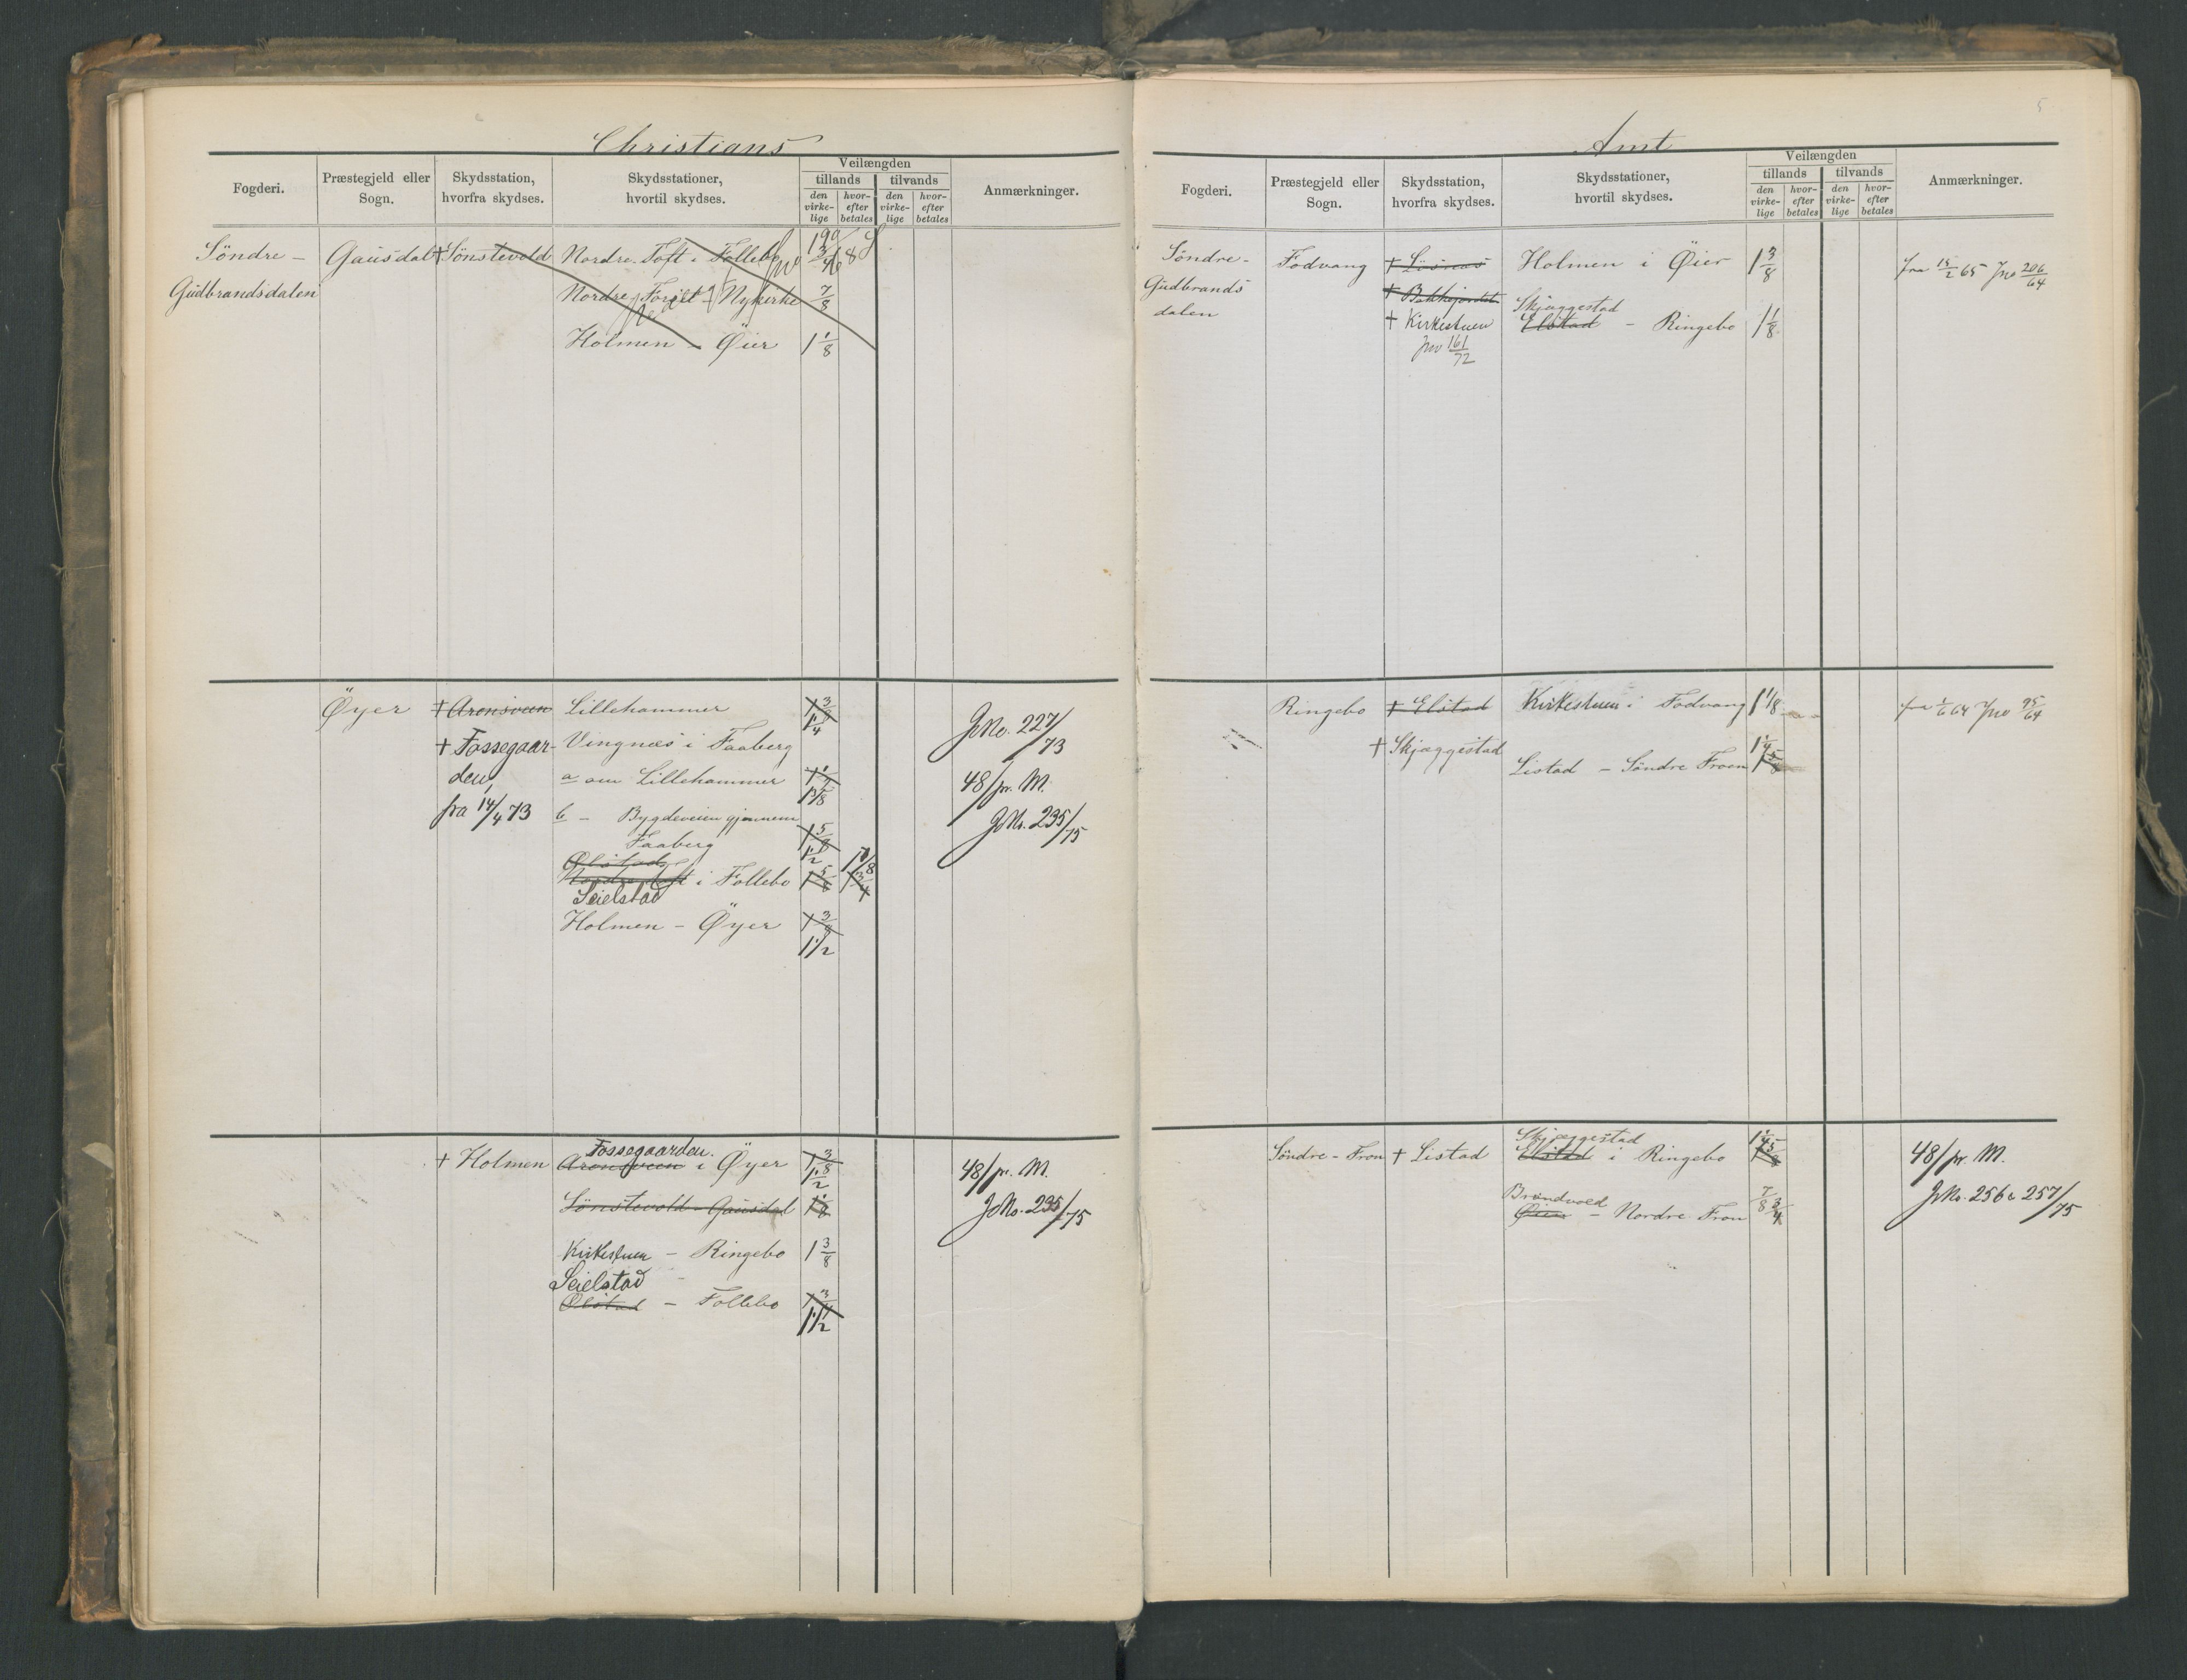 Christians
Fogderi.
Præstegjeld eller
Sogn.
Skydsstation,
hvorfra skydses.
Skydsstationer,
hvortil skydses.
Veilængden
tillands
tilvands
den virke-lige
hvor-efter betales
den virke-lige
hvor-efter betales
Anmærkninger.
Söndre - Gausdal + Sönstevold Nordre Toft i Follebo
Gudbrandsdalen
Nykirke 7/8
Holmen - Øier 1 1/8
Øyer + Aronsveen Lillehammer 1 3/8
1 1/4
JNo. 227/73
+ Fossegaar- Vingnæs i Faaberg
den, a om Lillehammer
1 3/8
48/pr. M.
fra 14/4 73 b - Bygdeveien gjennem
Faaberg 1 5/8
1 1/2
JNo. 235/75
Ølstad
Nordre Toft i Follebo 1 5/8 1 3/4
1 7/8
Seielstad
Holmen - Øyer 1 3/8
1 1/2
+ Holmen Fossegaarden.
Aronsveen i Øyer 1 3/8
1 1/2
48/pr. M.
Sönstevold - Gausdal 1 1/8
JNo. 235/75
Kirkestuen - Ringebo 1 3/8
Seielstad
Ølstad - Follebo
1 1/2
5
Amt
Fogderi.
Præstegjeld eller
Sogn.
Skydsstation,
hvorfra skydses.
Skydsstationer,
hvortil skydses.
Veilængden
tillands
tilvands
den virke-lige
hvor-efter betales
den virke-lige
hvor-efter betales
Anmærkninger.
Söndre - Fodvang + Lösnæs Holmen i Øier 1 3/8 fra 15/2 65 Jno 206/64
Gudbrands
dalen + Kirkestuen Skjæggestad
Elstad - Ringebo 1 1/8
Jno 161/72
Ringebo + Elstad Kirkestuen i Fodvang 1 1/8 fra 1/6 64 Jno 95/64
+ Skjæggestad
Listad - Söndre Froen 1 1/4
1 5/8
Söndre - Fron + Listad Skjæggestad
Elstad i Ringebo 1 1/4
1 5/8
48/pr. M.
Brandvold
Øien - Nordre Fron 7/8 3/4
JNo. 256 & 257/75